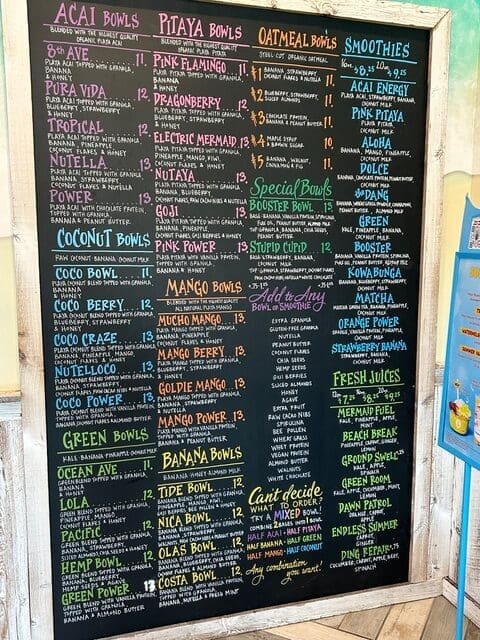 ACAI BOWLS
BLENDED WITH THE HIGHEST QUALITY
ORGANIC PLAYA ACAI
8th AVE 11.
PLAYA ACAI TOPPED WITH GRANOLA,
BANANA
& HONEY
PURA VIDA 12.
PLAYA ACAI TOPPED WITH GRANOLA,
BANANA, STRAWBERRY,
& HONEY
TROPICAL 13.
PLAYA ACAI TOPPED WITH GRANOLA,
BANANA, PINEAPPLE,
COCONUT FLAKES & HONEY
NUTELLA 13.
PLAYA ACAI TOPPED WITH GRANOLA,
BANANA, STRAWBERRY,
COCONUT FLAKES & NUTELLA
POWER 13.
PLAYA ACAI WITH CHOCOLATE PROTEIN,
TOPPED WITH GRANOLA,
BANANA & PEANUT BUTTER
COCONUT BOWLS
RAW COCONUT BANANA COCONUT MILK
COCO BOWL 11.
PLAYA COCONUT BLEND TOPPED WITH GRANOLA,
BANANA
& HONEY
COCO BERRY 12.
PLAYA COCONUT BLEND TOPPED WITH GRANOLA,
BLUEBERRY, STRAWBERRY
& HONEY
COCO CRAZE 13.
PLAYA COCONUT BLEND TOPPED WITH GRANOLA,
BANANA, PINEAPPLE, MANGO,
COCONUT FLAKES & HONEY
NUTELLOCO 13.
PLAYA COCONUT BLEND TOPPED WITH GRANOLA,
BANANA, STRAWBERRY,
COCONUT FLAKES, RAW CACAO NIBS & NUTELLA
COCO POWER 13.
PLAYA COCONUT BLEND WITH VANILLA PROTEIN,
TOPPED WITH GRANOLA,
BANANA, COCONUT FLAKES & ALMOND BUTTER
GREEN BOWLS
KALE BANANA PINEAPPLE COCONUT MILK
OCEAN AVE 11.
GREEN BLEND TOPPED WITH GRANOLA,
BANANA
& HONEY
LOLA 12.
GREEN BLEND TOPPED WITH GRANOLA,
BANANA, PINEAPPLE,
COCONUT FLAKES & HONEY
PACIFIC 12.
GREEN BLEND TOPPED WITH GRANOLA,
BANANA, STRAWBERRY,
SLICED ALMONDS, CHIA SEEDS & HONEY
HEMP BOWL 12.
GREEN BLEND TOPPED WITH GRANOLA,
BANANA, BLUEBERRY,
HEMP SEEDS & AGAVE
GREEN POWER 13.
GREEN BLEND WITH VANILLA PROTEIN,
TOPPED WITH GRANOLA,
BANANA & ALMOND BUTTER
PITAYA BOWLS
BLENDED WITH THE HIGHEST QUALITY
ORGANIC PLAYA PITAYA
PINK FLAMINGO 11.
PLAYA PITAYA TOPPED WITH GRANOLA,
BANANA
& HONEY
DRAGONBERRY 12.
PLAYA PITAYA TOPPED WITH GRANOLA,
BLUEBERRY, STRAWBERRY
& HONEY
ELECTRIC MERMAID 13.
PLAYA PITAYA TOPPED WITH GRANOLA,
PINEAPPLE, MANGO, KIWI,
COCONUT FLAKES & HONEY
NUTAYA 13.
PLAYA PITAYA TOPPED WITH GRANOLA,
BANANA, BLUEBERRY,
COCONUT FLAKES, RAW CACAO NIBS & NUTELLA
GOJI 13.
PLAYA PITAYA TOPPED WITH GRANOLA,
BANANA, PINEAPPLE,
COCONUT FLAKES, GOJI BERRIES & HONEY
PINK POWER 13.
PLAYA PITAYA WITH VANILLA PROTEIN,
TOPPED WITH GRANOLA,
BANANA & HONEY
MANGO BOWLS
BLENDED WITH THE HIGHEST QUALITY
ALL NATURAL PLAYA MANGO
MUCHO MANGO 13.
PLAYA MANGO TOPPED WITH GRANOLA,
BANANA, PINEAPPLE
COCONUT FLAKES & HONEY
MANGO BERRY 13.
PLAYA MANGO TOPPED WITH GRANOLA,
BLUEBERRY, STRAWBERRY
& HONEY
GOLDIE MANGO 13.
PLAYA MANGO TOPPED WITH GRANOLA,
BANANA, STRAWBERRY
& NUTELLA
MANGO POWER 13.
PLAYA MANGO WITH VANILLA PROTEIN,
TOPPED WITH GRANOLA,
BANANA & PEANUT BUTTER
BANANA BOWLS
BANANA HONEY ALMOND MILK
TIDE BOWL 12.
BANANA BLEND TOPPED WITH GRANOLA,
BANANA, KIWI,
GOJI BERRIES, BEE POLLEN & HONEY
NICA BOWL 12.
BANANA BLEND TOPPED WITH GRANOLA,
BANANA, STRAWBERRY,
OLAS BOWL 12.
BANANA BLEND TOPPED WITH GRANOLA,
BANANA, BLUEBERRY, CHIA SEEDS
COSTA BOWL 12.
BANANA BLEND WITH VANILLA PROTEIN,
TOPPED WITH GRANOLA,
BANANA, NUTELLA & FRESH MINT
OATMEAL BOWLS
STEEL CUT ORGANIC OATMEAL
#1 BANANA, STRAWBERRY,
COCONUT FLAKES & NUTELLA 11.
#2 BLUEBERRY, STRAWBERRY,
SLICED ALMONDS 11.
#3 CHOCOLATE PROTEIN,
BANANA & PEANUT BUTTER 11.
#4 MAPLE SYRUP
& BROWN SUGAR 10.
#5 BANANA, WALNUT,
CINNAMON & FIG 11.
Special Bowls
BOOSTER BOWL 13.
BASE: BANANA, VANILLA PROTEIN, SPIRULINA,
FLAX OIL, PEANUT BUTTER, ALMOND MILK
TOP: GRANOLA, BANANA, CHIA SEEDS,
PEANUT BUTTER
STUPID CUPID 12.
BASE: STRAWBERRY, BANANA,
COCONUT MILK
TOP: GRANOLA, STRAWBERRY, COCONUT FLAKES
RAW CACAO NIBS, HONEY & WHITE CHOCOLATE
Add to Any
BOWL OR SMOOTHIE
EXTRA GRANOLA
GLUTEN-FREE GRANOLA
NUTELLA
PEANUT BUTTER
COCONUT FLAKES
CHIA SEEDS
HEMP SEEDS
GOJI BERRIES
SLICED ALMONDS
HONEY
AGAVE
EXTRA FRUIT
RAW CACAO NIBS
SPIRULINA
BEE POLLEN
WHEAT GRASS
WHEY PROTEIN
VEGAN PROTEIN
ALMOND BUTTER
WALNUTS
WHITE CHOCOLATE
Can't decide
WHAT TO ORDER?
TRY A MIXED BOWL!
COMBINE 2 BASES INTO 1 BOWL
HALF ACAI - HALF PITAYA
HALF BANANA - HALF GREEN
HALF MANGO - HALF COCONUT
Any combination
you want!
SMOOTHIES
16oz $8.25 20oz $9.25
ACAI ENERGY
PLAYA ACAI, STRAWBERRY, BANANA,
COCONUT MILK
PINK PITAYA
PLAYA PITAYA,
COCONUT MILK
ALOHA
BANANA, MANGO, PINEAPPLE,
COCONUT MILK
DOLCE
BANANA, CHOCOLATE PROTEIN, PEANUT BUTTER,
COCONUT MILK
DANG
PEANUT BUTTER, ALMOND MILK
GREEN
KALE, PINEAPPLE, BANANA,
COCONUT MILK
BOOSTER
BANANA, VANILLA PROTEIN, SPIRULINA,
FLAX OIL, PEANUT BUTTER, ALMOND MILK
KOWABUNGA
COCONUT MILK
MATCHA
MATCHA GREEN TEA, BANANA, PINEAPPLE,
COCONUT MILK
ORANGE POWER
ORANGE, VANILLA PROTEIN, PINEAPPLE,
COCONUT MILK
STRAWBERRY BANANA
STRAWBERRY, BANANA,
COCONUT MILK
FRESH JUICES
12oz $7.25 16oz $8.25 20oz $9.25
MERMAID FUEL
KALE, PINEAPPLE, APPLE,
MINT
BEACH BREAK
PINEAPPLE, CARROT, GINGER,
LEMON
GROUND SWELL
KALE, APPLE,
SPINACH
GREEN ROOM
KALE, APPLE, CUCUMBER, MINT,
LEMON
DAWN PATROL
ORANGE, CARROT,
APPLE
ENDLESS SUMMER
CARROT,
GINGER
DING REPAIR
CUCUMBER, CARROT, APPLE, BEET,
SPINACH